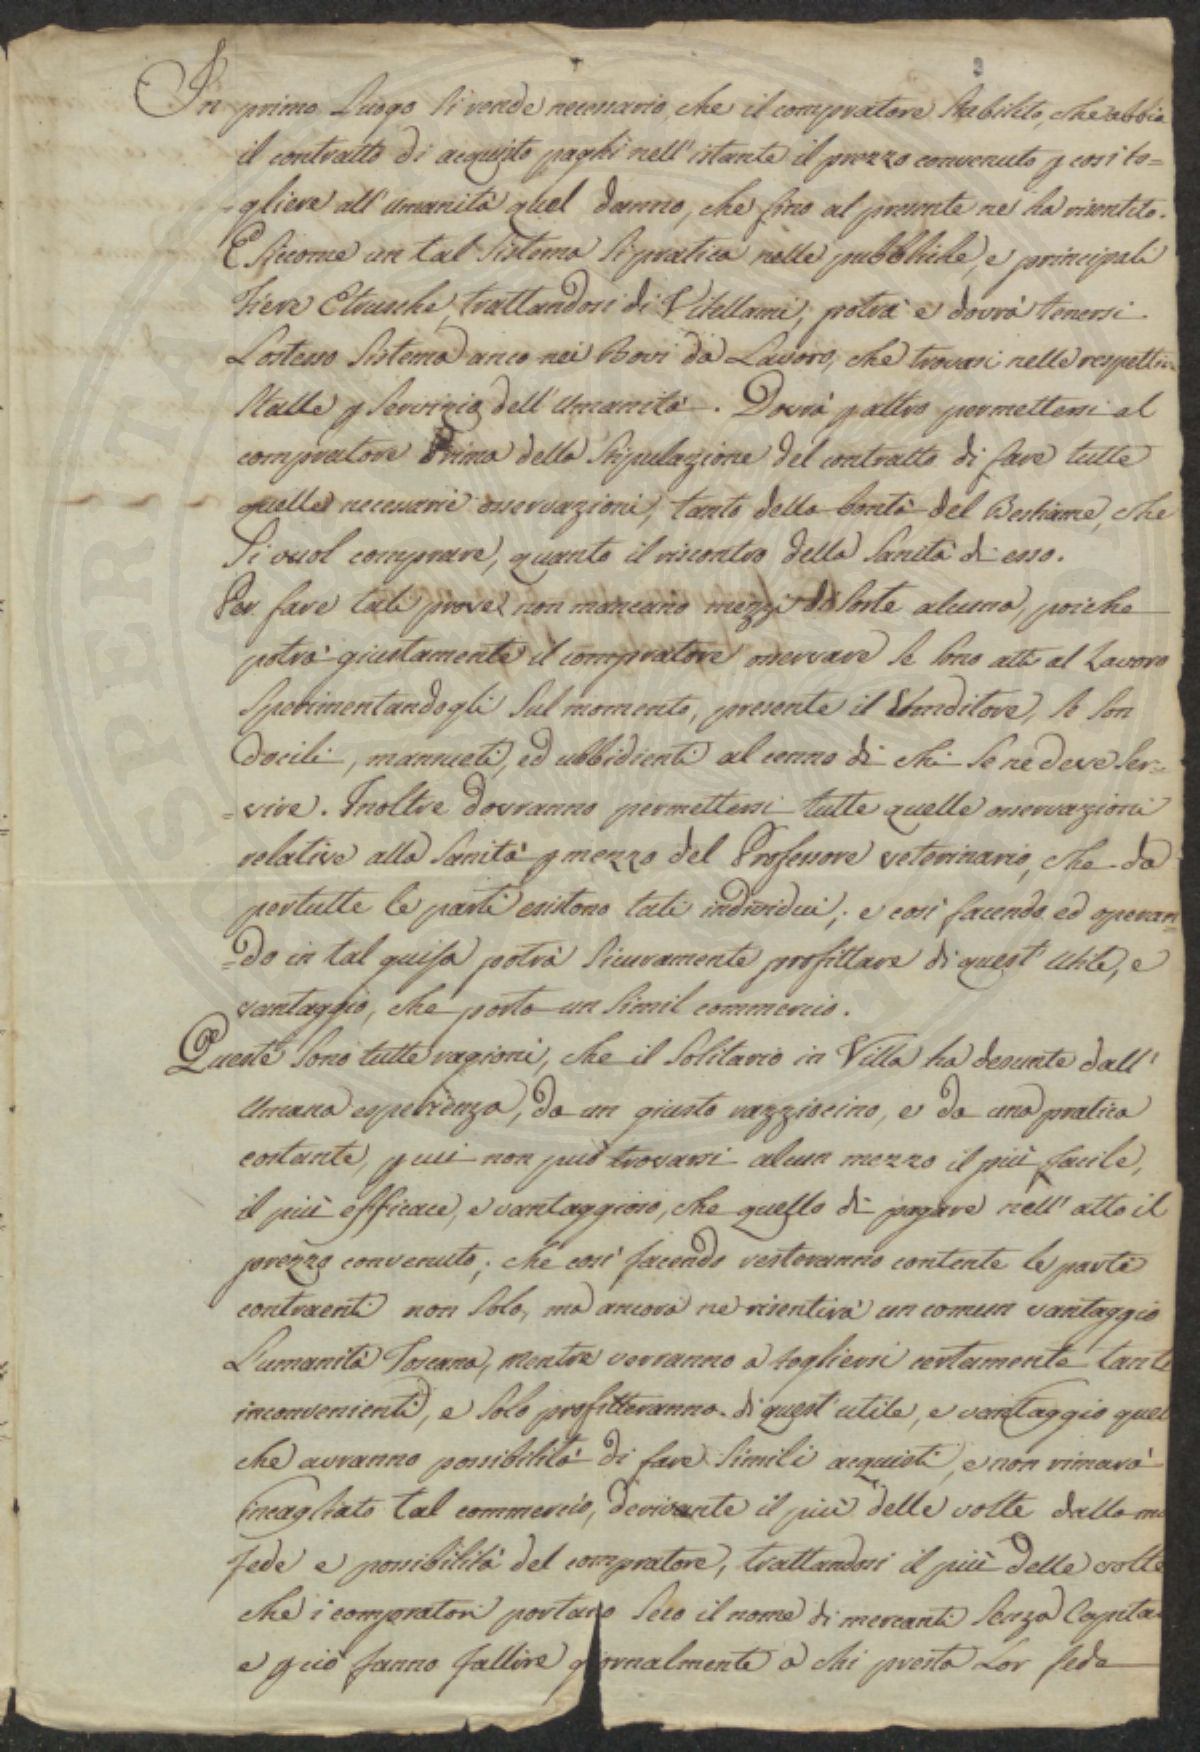 In primo Luogo Si rende necessario, che il compratore Stabilito, che abbia
il contratto di acquisto paghi nell' istante il prezzo convenuto p cosi to=
=gliere all' umanità quel danno, che fino al presente ne ha risentito.
E Siccome un tal Sistema Si pratica nelle pubbliche, e principali
Fiere Etrusche, trattandosi di Vitellami, potrà e dovrà tenersi
Lostesso Sistema anco nei Bovi da Lavoro, che trovasi nelle respettive
Stalle p Servizio dell' Umanità. Dovrà p altro permettersi al
compratore Prima della Stipulazione del contratto di fare tutte
quelle necessarie osservazioni, tanto della bontà del Bestiame, che
Si vuol comprare, quanto il riscontro della Sanità di esso.
Per fare tali prove non mancano mezzi di Sorte alcuna, poiche
potrà giustamente il compratore osservare Se Sono atti al Lavoro
Sperimentandogli Sul momento, presente il Venditore, Se Son
docili, mansueti, ed ubbidienti al cenno di chi Se ne deve Ser=
=vire. Inoltre dovranno permettersi tutte quelle osservazioni
relative alla Sanità p mezzo del Professore veterinario, che da
pertutte le parti esistono tali individui; e così facendo, ed operan=
=do in tal guisa potrà Sicuramente profittare di quest' Utile, e
vantaggio, che porta un Simil commercio.
Queste Sono tutte ragioni, che il Solitario in Villa ha desunte dall'
Umana esperienza, da un giusto razziocino, e da una pratica
costante, p cui non può trovarsi alcun mezzo il più facile,
il più efficace, e vantaggioso, che quello di pagare nell' atto il
prezzo convenuto; che così facendo resteranno contente le parti
contraenti non Solo, ma ancora ne risentirà un comun vantaggio
L'umanità Toscana, mentre verranno a togliersi certamente tanti
inconvenienti, e Solo profitteranno di quest' utile, e vantaggio quei
che avranno possibilità di fare Simili acquisti, e non rimarà
incagliato tal commercio, derivante il più delle volte dalla ma
fede e possibilità del compratore, trattandosi il più delle volte
che i compratori portano Seco il nome di mercanti Senza Capita
e p ciò fanno fallire giornalmente a chi presta Lor fede